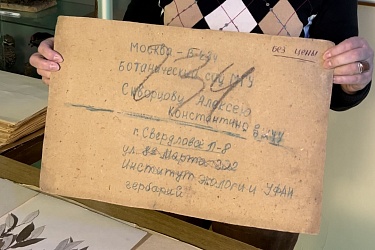 Москва - В-234
без цены
Ботанический сад МГУ
Скворцову Алексею
Константиновичу
г. Свердловск Л-8
ул. 8е Марта 202
Институт экологии УФАН
гербарий